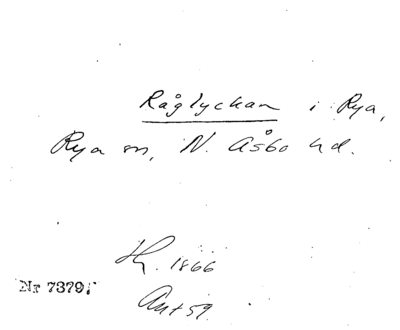 Råglyckan i Rya,
Rya sn, N. Åsbo hd.
Hy. 1866
Nr 7379;
Ant 59.